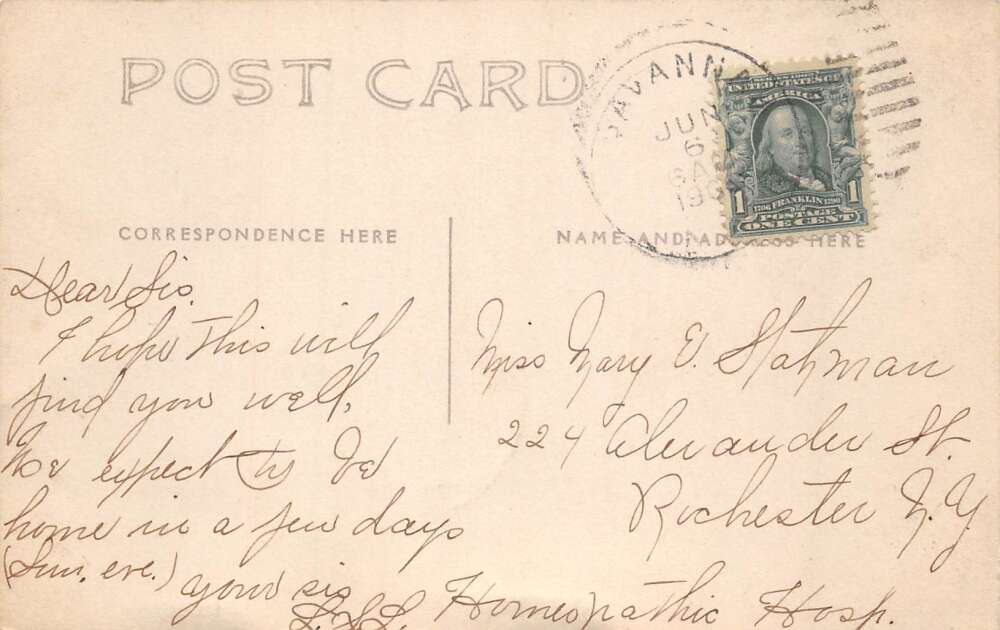 POST CARD
SAVANNA
JUN
6
6A
190
SERIES 1902
UNITED STATES OF
AMERICA
1 1
1706 FRANKLIN 1790
POSTAGE
ONE CENT
CORRESPONDENCE HERE
NAME AND ADDRESS HERE
Dear Sis.
I hope this will
find you well.
We expect to be
home in a few days
(Sun. eve.) your sis
L.L.L.
Miss Mary E. Statman
224 Alexander St.
Rochester N.Y.
Homeopathic Hosp.